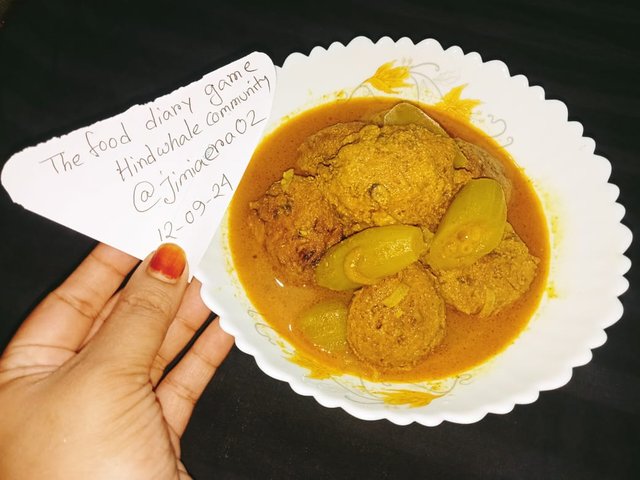 The food diary game
Hindwhale community
@jimiaera02
12-09-24